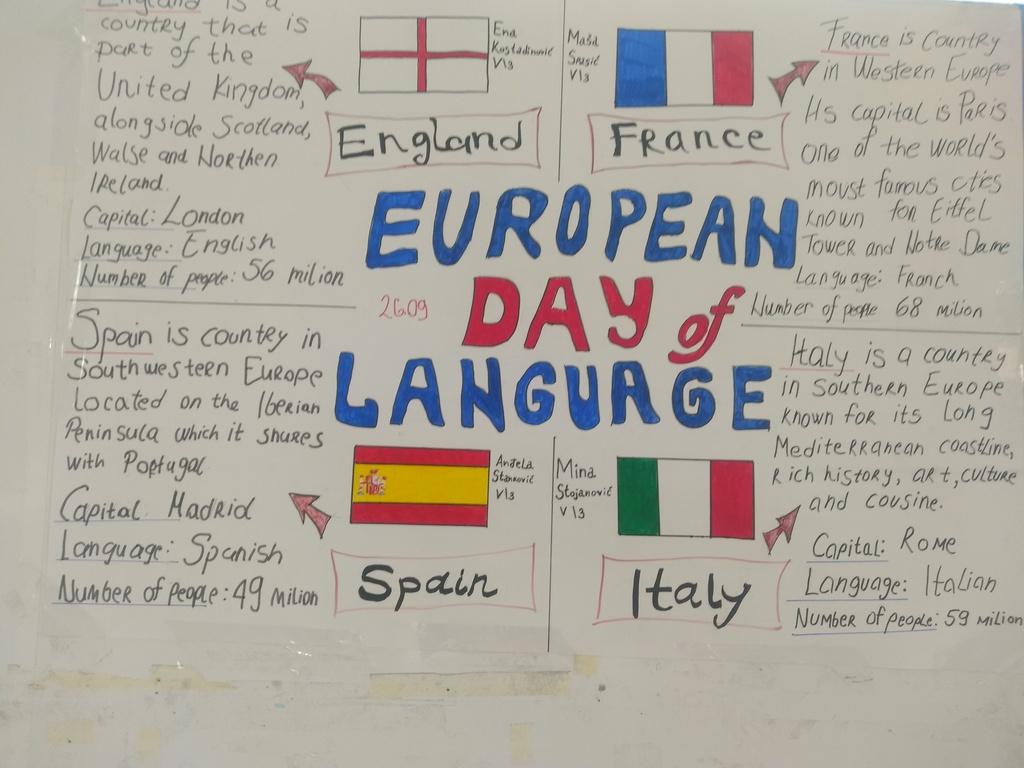 England is a
country that is
part of the
United Kingdom,
alongside Scotland,
Walse and Northen
Ireland.
Capital: London
Language: English
Number of people: 56 milion
Ena
Kostadinović
V|3
England
Maša
Srusić
V|3
France
France is country
in Western Europe
Its capital is Paris
one of the world's
moust famous cties
known for Eiffel
Tower and Notre Dame
Language: Franch
Number of people 68 milion
EUROPEAN
DAY of
LANGUAGE
26.09
Spain is country in
Southwestern Europe
Located on the Iberian
Peninsula which it shares
with Portugal
Capital: Madrid
Language: Spanish
Number of people: 49 milion
Anđela
Stanković
V|3
Spain
Mina
Stojanović
V|3
Italy
Italy is a country
in Southern Europe
known for its long
Mediterranean coastline,
rich history, art, culture
and cousine.
Capital: Rome
Language: Italian
Number of people: 59 milion